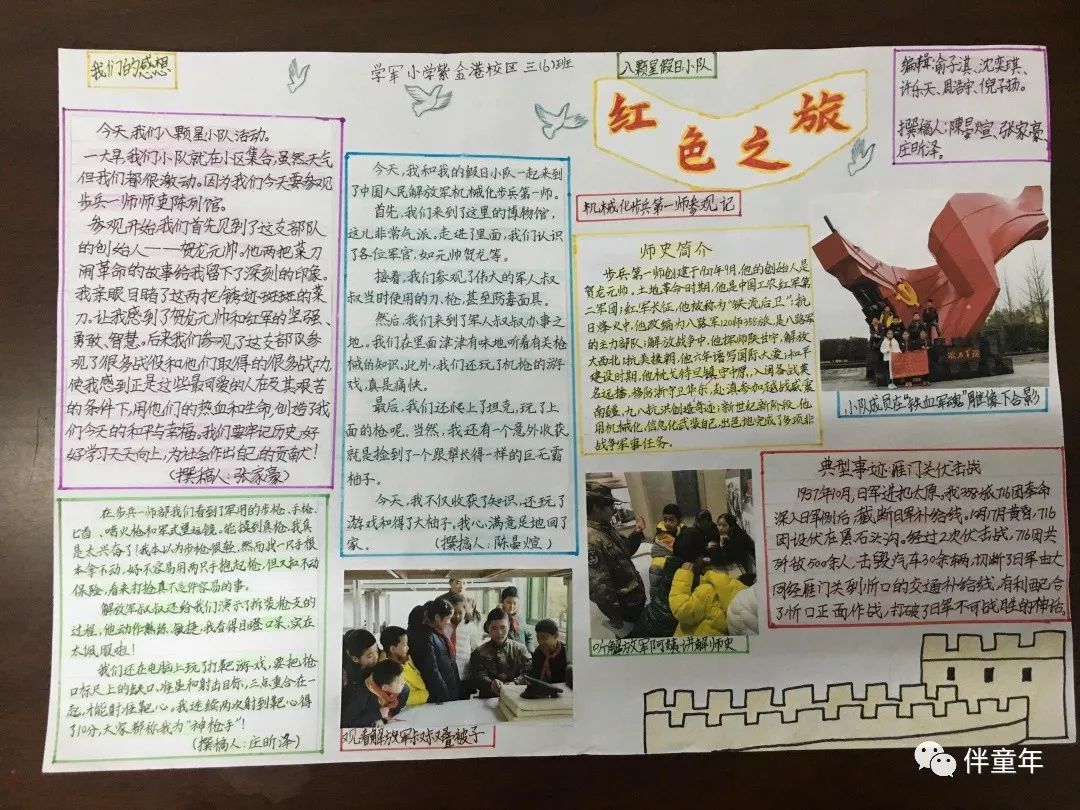 我们的感想
学军小学紫金港校区三(6)班
八颗星假日小队
红色之旅
编辑:俞子淇、沈奕琪、
许乐天、周浩宇、倪子扬。
撰稿人:陳晏煊、张家豪、
庄昕泽。
今天,我们八颗星小队活动。
一大早,我们小队就在小区集合,虽然天气
但我们都很激动。因为我们今天要参观
步兵一师师史陈列馆。
参观开始,我们首先见到了这支部队
的创始人——贺龙元帅。他两把菜刀
闹革命的故事给我留下了深刻的印象。
我亲眼目睹了这两把锈迹斑斑的菜
刀。让我感到了贺龙元帅和红军的坚强、
勇敢、智慧。后来我们参观了这支部队参
观了很多战役和他们取得的很多战功,
使我感到正是这些最可爱的人在及其艰苦
的条件下,用他们的热血和生命,创造了我
们今天的和平与幸福。我们要牢记历史,好
好学习天天向上,为社会作出自己的贡献!
(撰搞人:张家豪)
在步兵一师部我们看到了军用的步枪、手枪、
匕首、喷火枪和军式望远镜。能摸到真枪,我真
是太兴奋了!我本以为步枪很轻,然而我一只手根
本拿不动,好不容易用两只手抱起枪,但又拉不动
保险,看来打枪真不是件容易的事。
解放军叔叔还给我们演示了拆装枪支的
过程,他动作熟练、敏捷,我看得目瞪口呆,实在
太佩服啦!
我们还在电脑上玩了打靶游戏,要把枪
口标尺上的缺口、准星和射击目标,三点重合在一
起,才能射在靶心。我连续两次射到靶心得
了10分,大家都称我为“神枪手”!
(撰搞人:庄昕泽)
今天,我和我的假日小队一起来到
了中国人民解放军机械化步兵第一师。
首先,我们来到了这里的博物馆,
这儿非常气派。走进了里面,我们认识
了各位军官,如元帅贺龙等。
接着,我们参观了伟大的军人叔
叔当时使用的刀、枪,甚至防毒面具。
然后,我们来到了军人叔叔办事之
地。我们在里面津津有味地听着有关枪
械的知识。此外,我们还玩了机枪的游
戏,真是痛快。
最后,我们还爬上了坦克,玩了上
面的枪呢。当然,我还有一个意外收获,
就是捡到了一个跟犁长得一样的巨无霸
柚子。
今天,我不仅收获了知识,还玩了
游戏和得了大柚子。我心满意足地回了
家。(撰搞人:陈晏煊)
观看解放军叔叔叠被子
机械化步兵第一师参观记
师史简介
步兵第一师创建于1927年9月,他的创始人是
贺龙元帅。土地革命时期,他是中国工农红军第
二军团;红军长征,他被称为“铁流后卫”;抗
日烽火中,他改编为八路军120师358旅,是八路军
的主力部队;解放战争中,他挥师陕甘宁,解放
大西北;抗美援朝,他六年谱写国际大爱;和平
建设时期,他枕戈待旦镇守中原,入闽备战美
名远播,移防浙守卫华东,赴滇参加轮战威震
南疆,九八抗洪创造奇迹;新世纪新阶段,他
用机械化、信息化武装自己,出色地完成了多项非
战争军事任务。
铁血军魂
小队成员在“铁血军魂”雕像下合影
听解放军阿姨讲解师史
典型事迹:雁门关伏击战
1937年10月,日军进犯太原。我358旅716团奉命
深入日军侧后,截断日军补给线。10月17日黄昏,716
团设伏在黑石头沟。经过2次伏击战,716团共
歼敌500余人,击毁汽车30余辆,切断了日军由大
同经雁门关到忻口的交通补给线,有利配合
了忻口正面作战,打破了日军不可战胜的神话。
伴童年